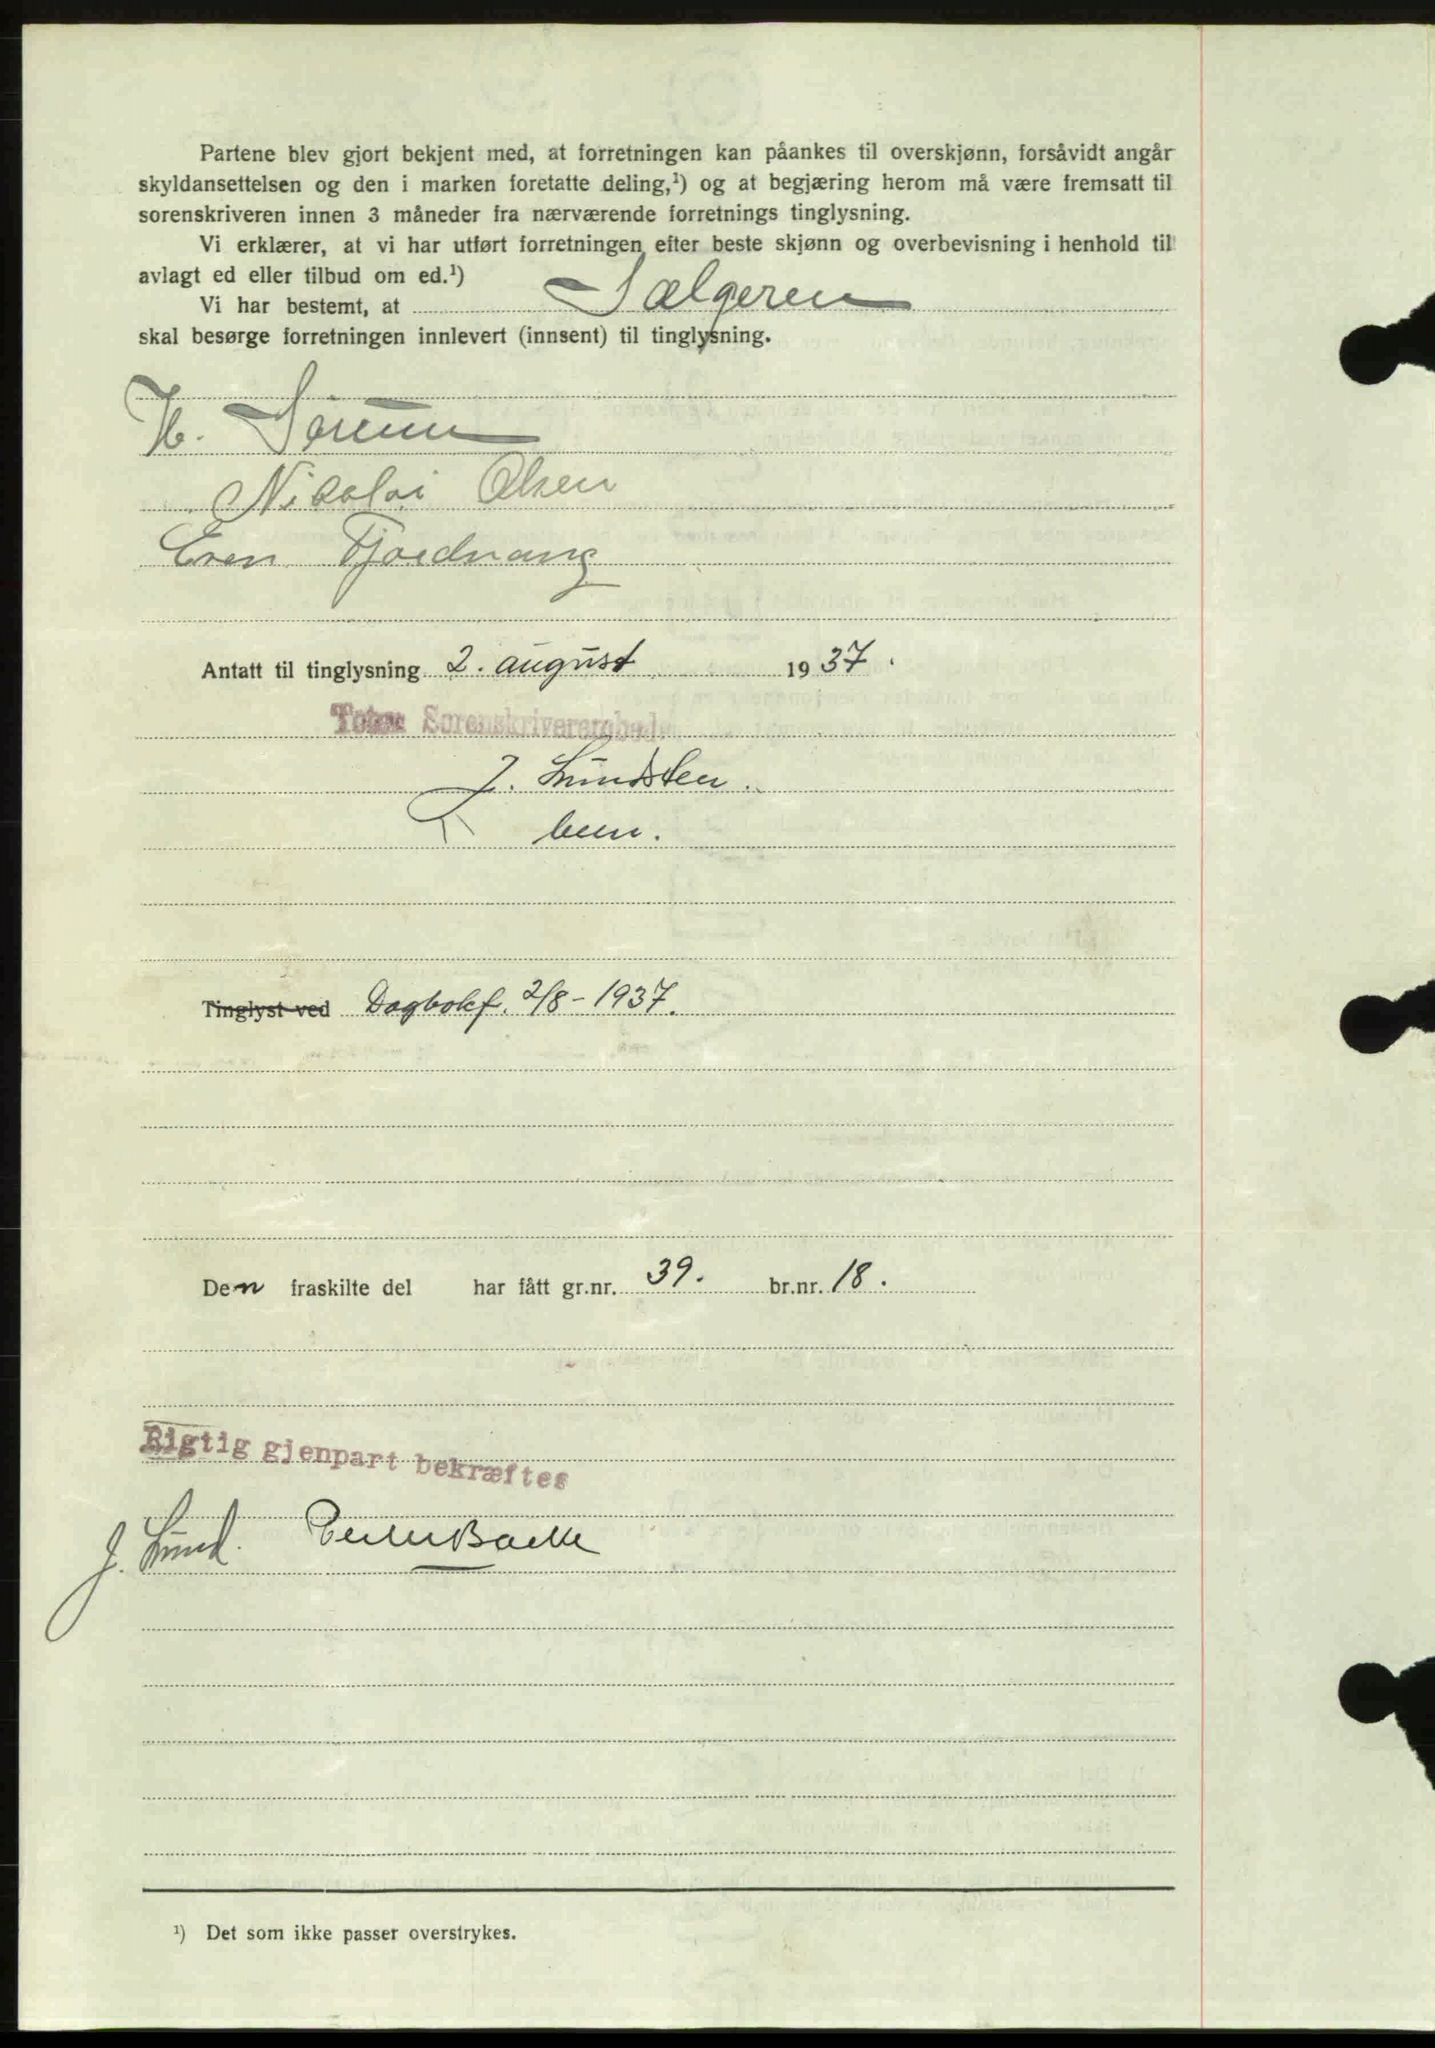 Partene blev gjort bekjent med, at forretningen kan påankes til overskjønn, forsåvidt angår
skyldansettelsen og den i marken foretatte deling,¹) og at begjæring herom må være fremsatt til
sorenskriveren innen 3 måneder fra nærværende forretnings tinglysning.
Vi erklærer, at vi har utført forretningen efter beste skjønn og overbevisning i henhold til
avlagt ed eller tilbud om ed.¹)
Vi har bestemt, at Sælgeren
skal besørge forretningen innlevert (innsent) til tinglysning.
H. Sørum
Nikolai Olsen
Even Fjordvang
Antatt til tinglysning 2. august 1937.
Toten Sorenskriverembede
J. Lundsten
Tinglyst ved Dagbokf. 2/8-1937.
Den fraskilte del har fått gr.nr. 39. br.nr. 18.
Rigtig gjenpart bekræftes
J. Lund. Peder Bakke
¹) Det som ikke passer overstrykes.